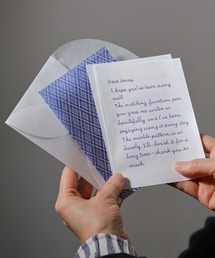 Dear Anna,
I hope you've been doing
well.
The matching fountain pen
you gave me writes so
beautifully and I've been
enjoying using it every day.
The marble pattern is so
lovely. I'll cherish it for a
long time - thank you so
much.